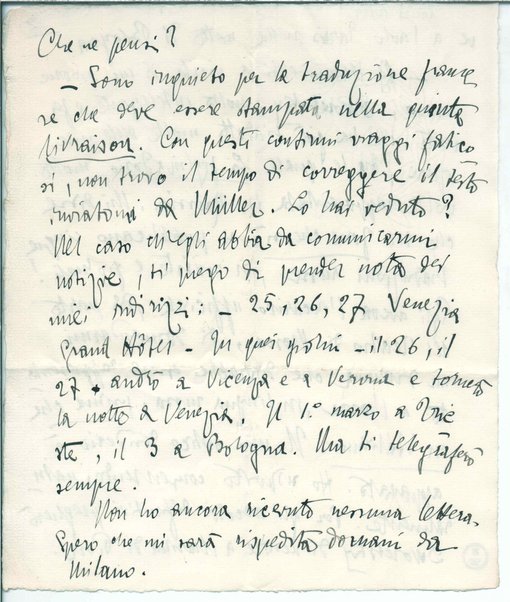 Che ne pensi?
– Sono inquieto per la traduzione france
se che deve essere stampata nella quinta
livraison. Con questi continui viaggi fatico
si, non trovo il tempo di correggere il testo
inviatomi da Müller. Lo hai veduto?
Nel caso ch'egli abbia da comunicarmi
notizie, ti prego di prender nota dei
miei indirizzi: – 25, 26, 27 Venezia
Grand Hôtel – In quei giorni – il 26, il
27 andrò a Vicenza e a Verona e tornerò
la notte a Venezia. Il 1.º marzo a Trie
ste, il 3 a Bologna. Ma ti telegraferò
sempre.
Non ho ancora ricevuto nessuna lettera.
Spero che mi sarà rispedita domani da
Milano.